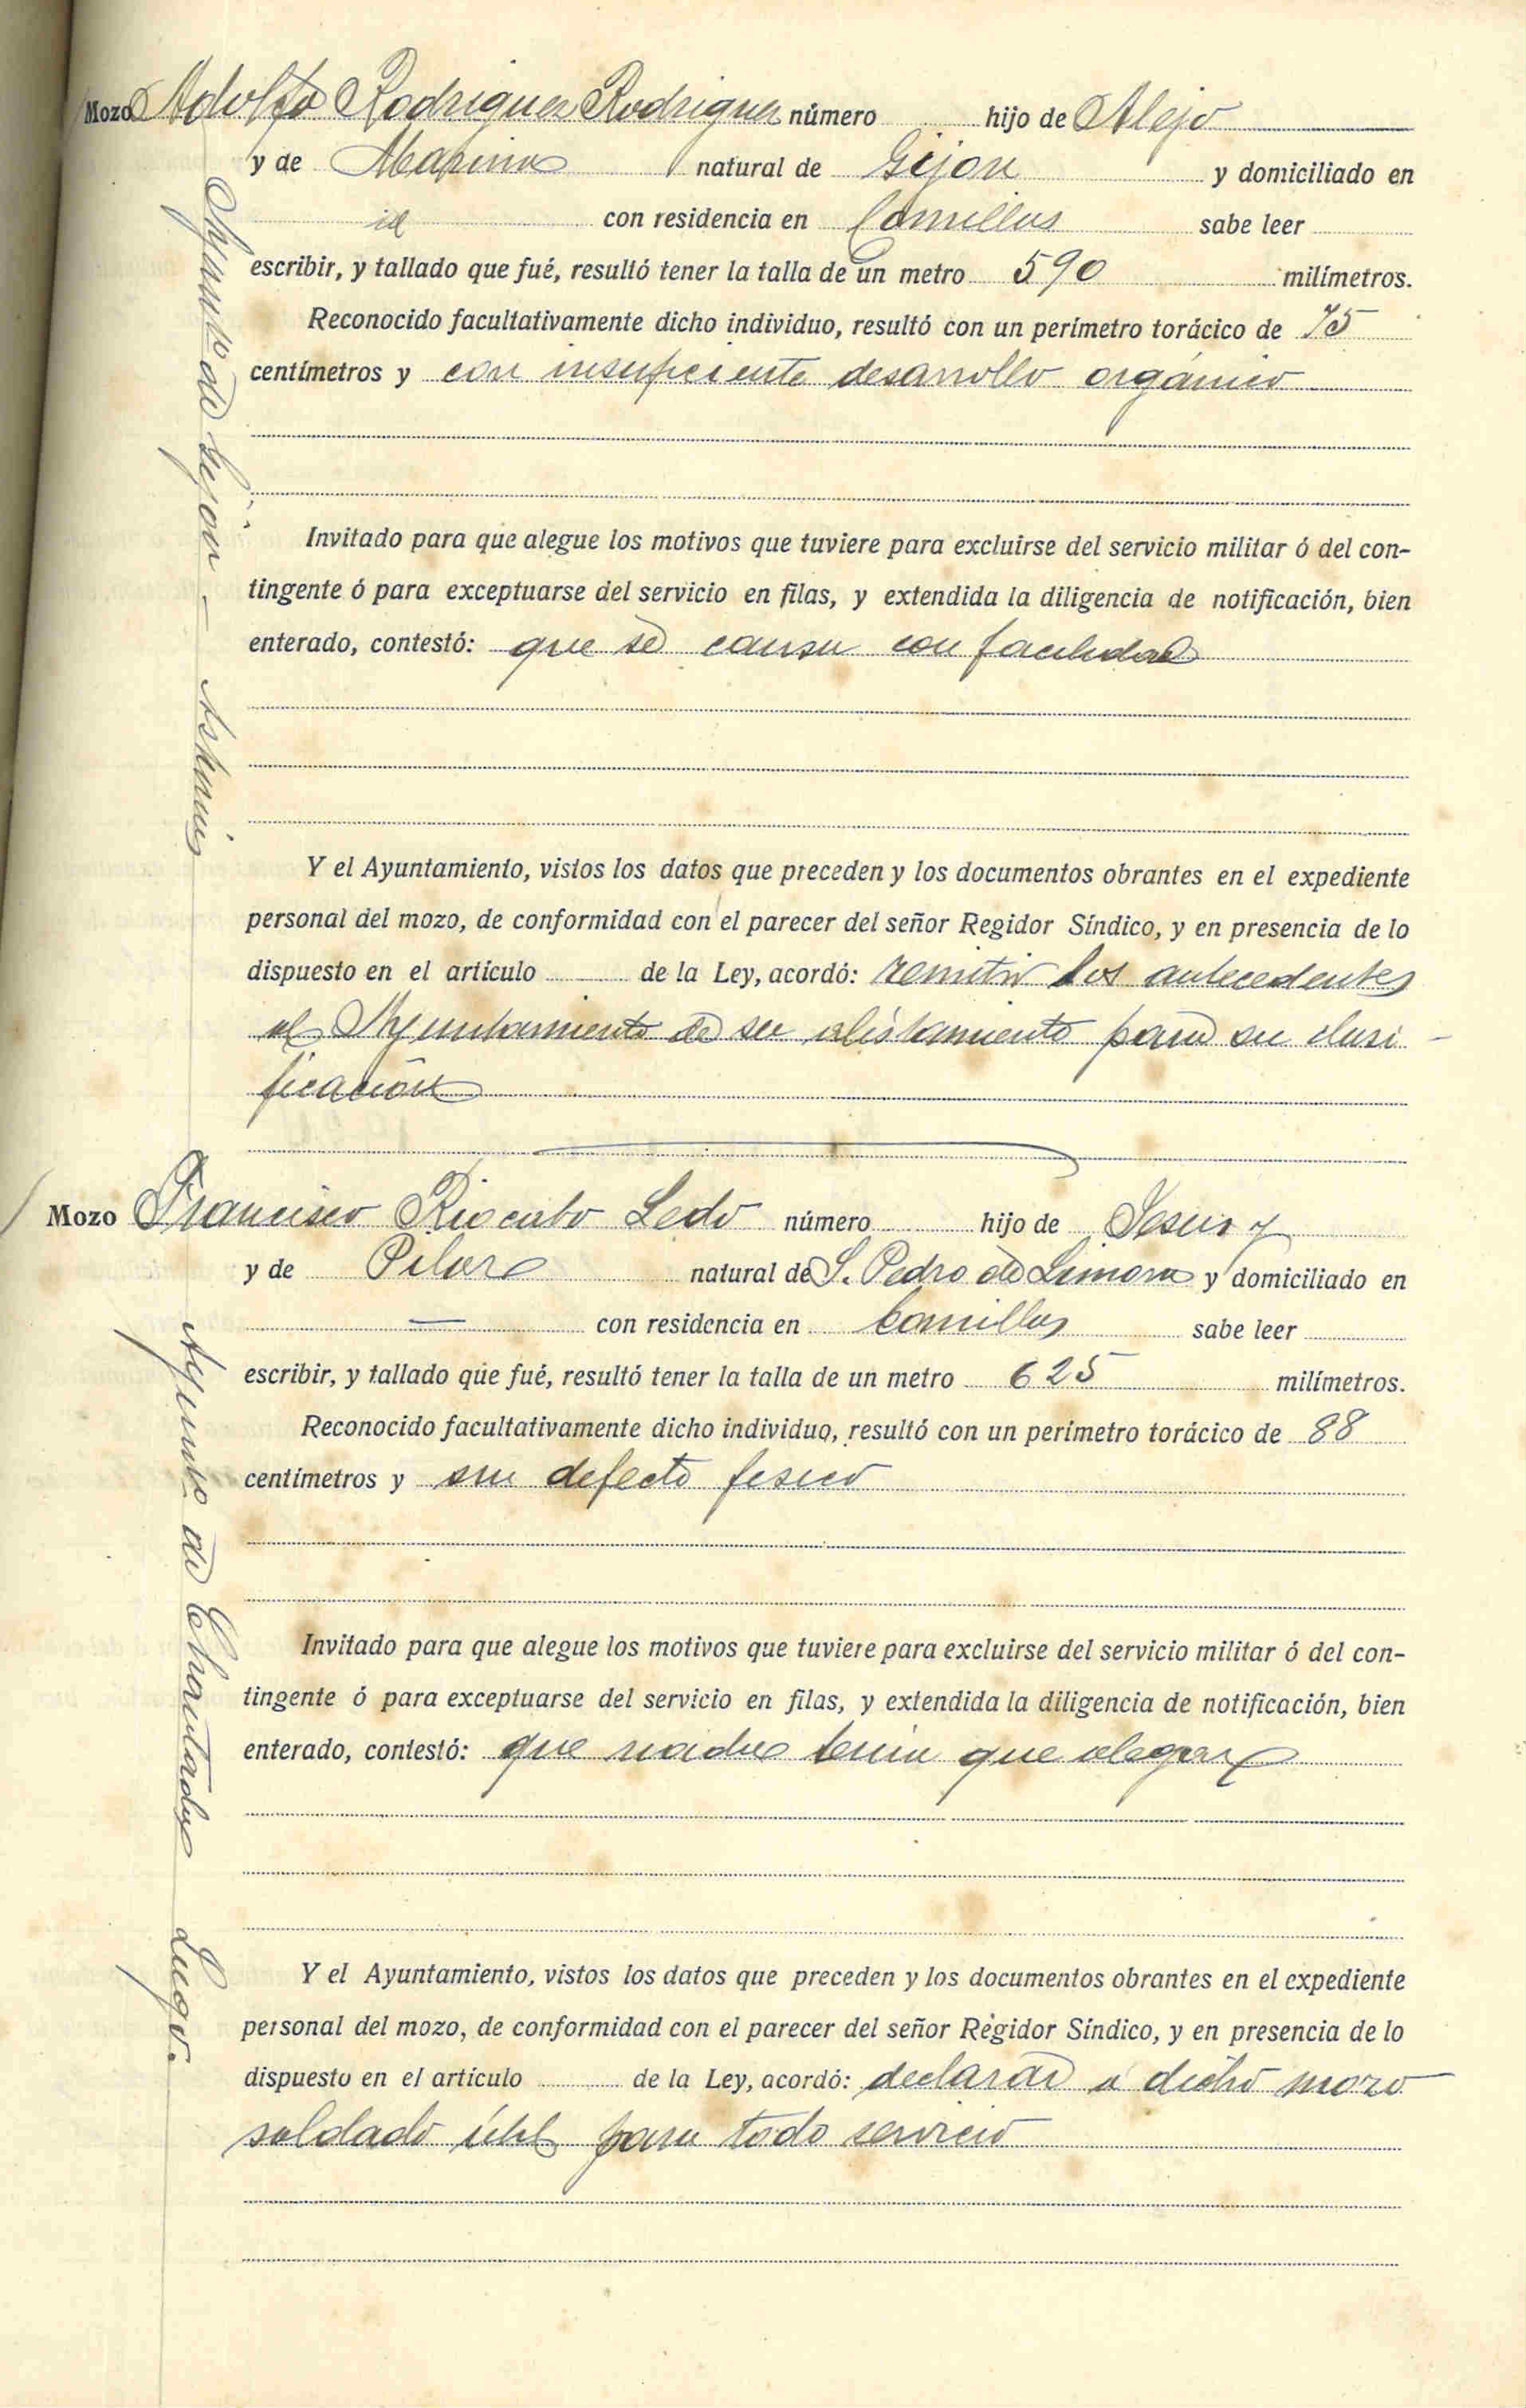 Mozo Adolfo Rodriguez Rodriguez número hijo de Alejo
y de Marina natural de Gijon y domiciliado en
id con residencia en Comillas sabe leer
escribir, y tallado que fué, resultó tener la talla de un metro 590 milímetros.
Reconocido facultativamente dicho individuo, resultó con un perímetro torácico de 75
centímetros y con insuficiente desarrollo orgánico
Invitado para que alegue los motivos que tuviere para excluirse del servicio militar ó del con-
tingente ó para exceptuarse del servicio en filas, y extendida la diligencia de notificación, bien
enterado, contestó: que se cansa con facilidad
Y el Ayuntamiento, vistos los datos que preceden y los documentos obrantes en el expediente
personal del mozo, de conformidad con el parecer del señor Regidor Síndico, y en presencia de lo
dispuesto en el artículo de la Ley, acordó: remitir los antecedentes
al Ayuntamiento de su alistamiento para su clasi-
ficación
Ayunto de Gijón - Asturias
Mozo Francisco Ledo número hijo de Jesus y
y de Pilar natural de S. Pedro de Limora y domiciliado en
— con residencia en Comillas sabe leer
escribir, y tallado que fué, resultó tener la talla de un metro 625 milímetros.
Reconocido facultativamente dicho individuo, resultó con un perímetro torácico de 88
centímetros y sin defecto fisico
Invitado para que alegue los motivos que tuviere para excluirse del servicio militar ó del con-
tingente ó para exceptuarse del servicio en filas, y extendida la diligencia de notificación, bien
enterado, contestó: que nada tenia que alegar
Y el Ayuntamiento, vistos los datos que preceden y los documentos obrantes en el expediente
personal del mozo, de conformidad con el parecer del señor Regidor Síndico, y en presencia de lo
dispuesto en el artículo de la Ley, acordó: declarar a dicho mozo
soldado útil para todo servicio
Ayunto de Chantada Lugo.